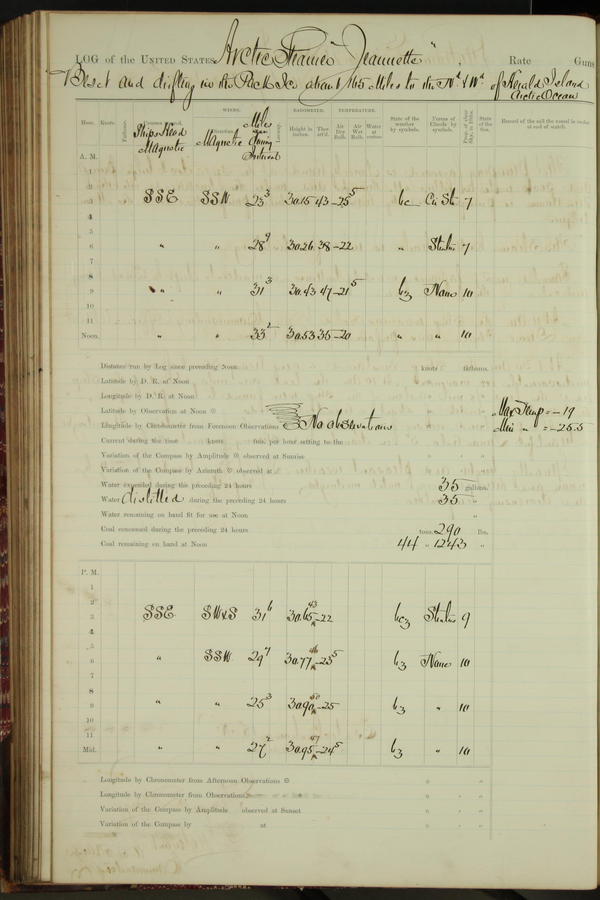 LOG of the UNITED STATES Arctic Steamer "Jeannette", Rate Guns
Beset and drifting in the Pack Ice about 165 Miles to the Nd & Wd of Herald Island
Arctic Ocean
Hour. Knots. Fathoms. Courses steered. WINDS. Direction. Leeway. BAROMETER. Height in inches. Ther. att'd. TEMPERATURE. Air Dry Bulb. Air Wet Bulb. Water at surface. State of the weather by symbols. Forms of Clouds by symbols. Prop. of clear Sky, in 10ths. State of the Sea. Record of the sail the vessel is under at end of watch.
Ships Head Magnetic Magnetic Miles during Interval
A. M.
1
2
3 SSE SSW 25³ 30.15 43 -25⁵ bc Ci St 7
4
5
6 " " 28⁹ 30.26 38 -22 " Stratus 7
7
8
9 " " 31³ 30.43 47 -21⁵ bz None 10
10
11
Noon. " " 33² 30.53 35 -20 " " 10
Distance run by Log since preceding Noon knots fathoms.
Latitude by D. R. at Noon
Longitude by D. R. at Noon
Latitude by Observation at Noon Max Temp = -19
Longitude by Chronometer from Forenoon Observations No observations Min " = -25.5
Current during the time knots fms. per hour setting to the
Variation of the Compass by Amplitude observed at Sunrise
Variation of the Compass by Azimuth observed at
Water expended during the preceding 24 hours 35 gallons.
Water distilled during the preceding 24 hours 35 "
Water remaining on hand fit for use at Noon "
Coal consumed during the preceding 24 hours tons. 290 lbs.
Coal remaining on hand at Noon 44 " 1243 "
P. M.
1
2
3 SSE SWxS 31⁶ 30.65 43 -22 bcz Stratus 9
4
5
6 " SSW 29⁷ 30.77 46 -23⁵ bz None 10
7
8
9 " " 25³ 30.90 50 -25 bz " 10
10
11
Mid. " " 27² 30.95 47 -24⁵ bz " 10
Longitude by Chronometer from Afternoon Observations
Longitude by Chronometer from Observations
Variation of the Compass by Amplitude observed at Sunset
Variation of the Compass by at